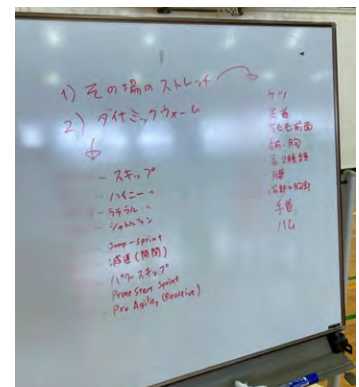 1) その場のストレッチ
2) ダイナミックウォーム
- スキップ
- ハイニー 〃
- ラテラル 〃
- シャトルラン
- Jump-Sprint
減速(開閉)
- パワースキップ
- Prone Start Sprint
- Pro Agility (Reactive)
ケツ
足首
太もも前面
肩・胸
2種類
腰
手首
ハム